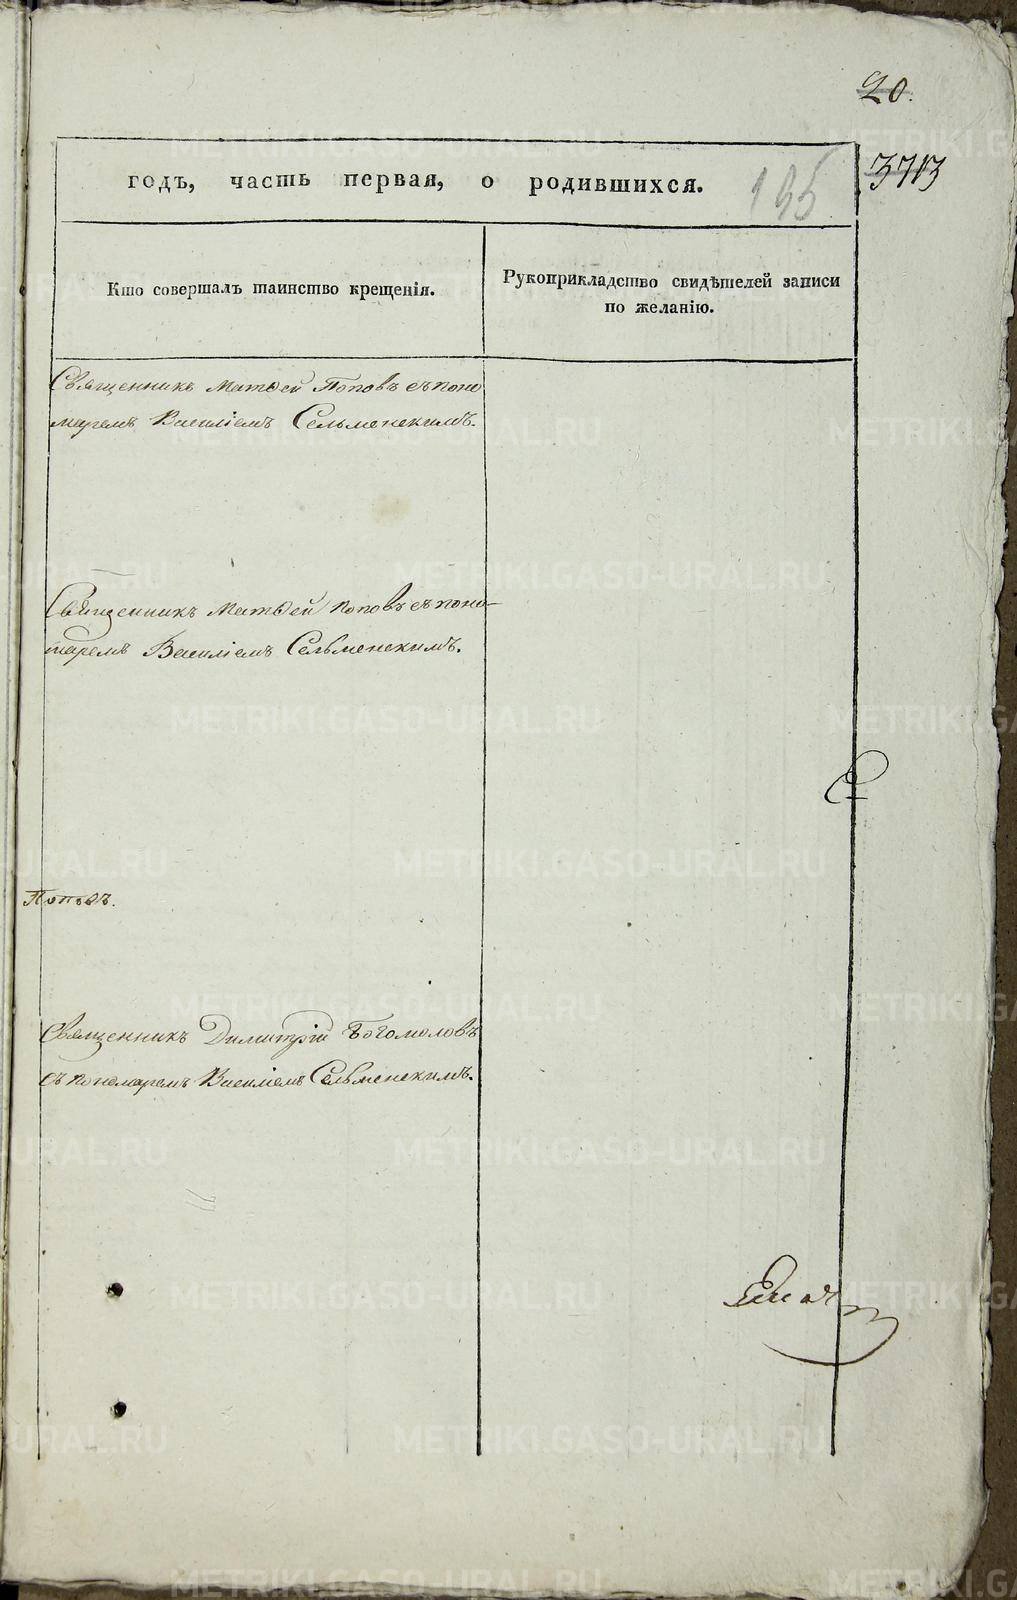 20.
3713
годъ, часть первая, о родившихся.
195
Кто совершалъ таинство крещенія.
Рукоприкладство свидѣтелей записи
по желанію.
Священникъ Матѳей Поповъ съ поно
маремъ Василіемъ Сельменскимъ.
Священникъ Матѳей Поповъ съ поно-
маремъ Василіемъ Сельменскимъ.
Поповъ.
Священникъ Димитрій Богомоловъ
съ пономаремъ Василіемъ Сельменскимъ.
METRIKI.GASO-URAL.RU